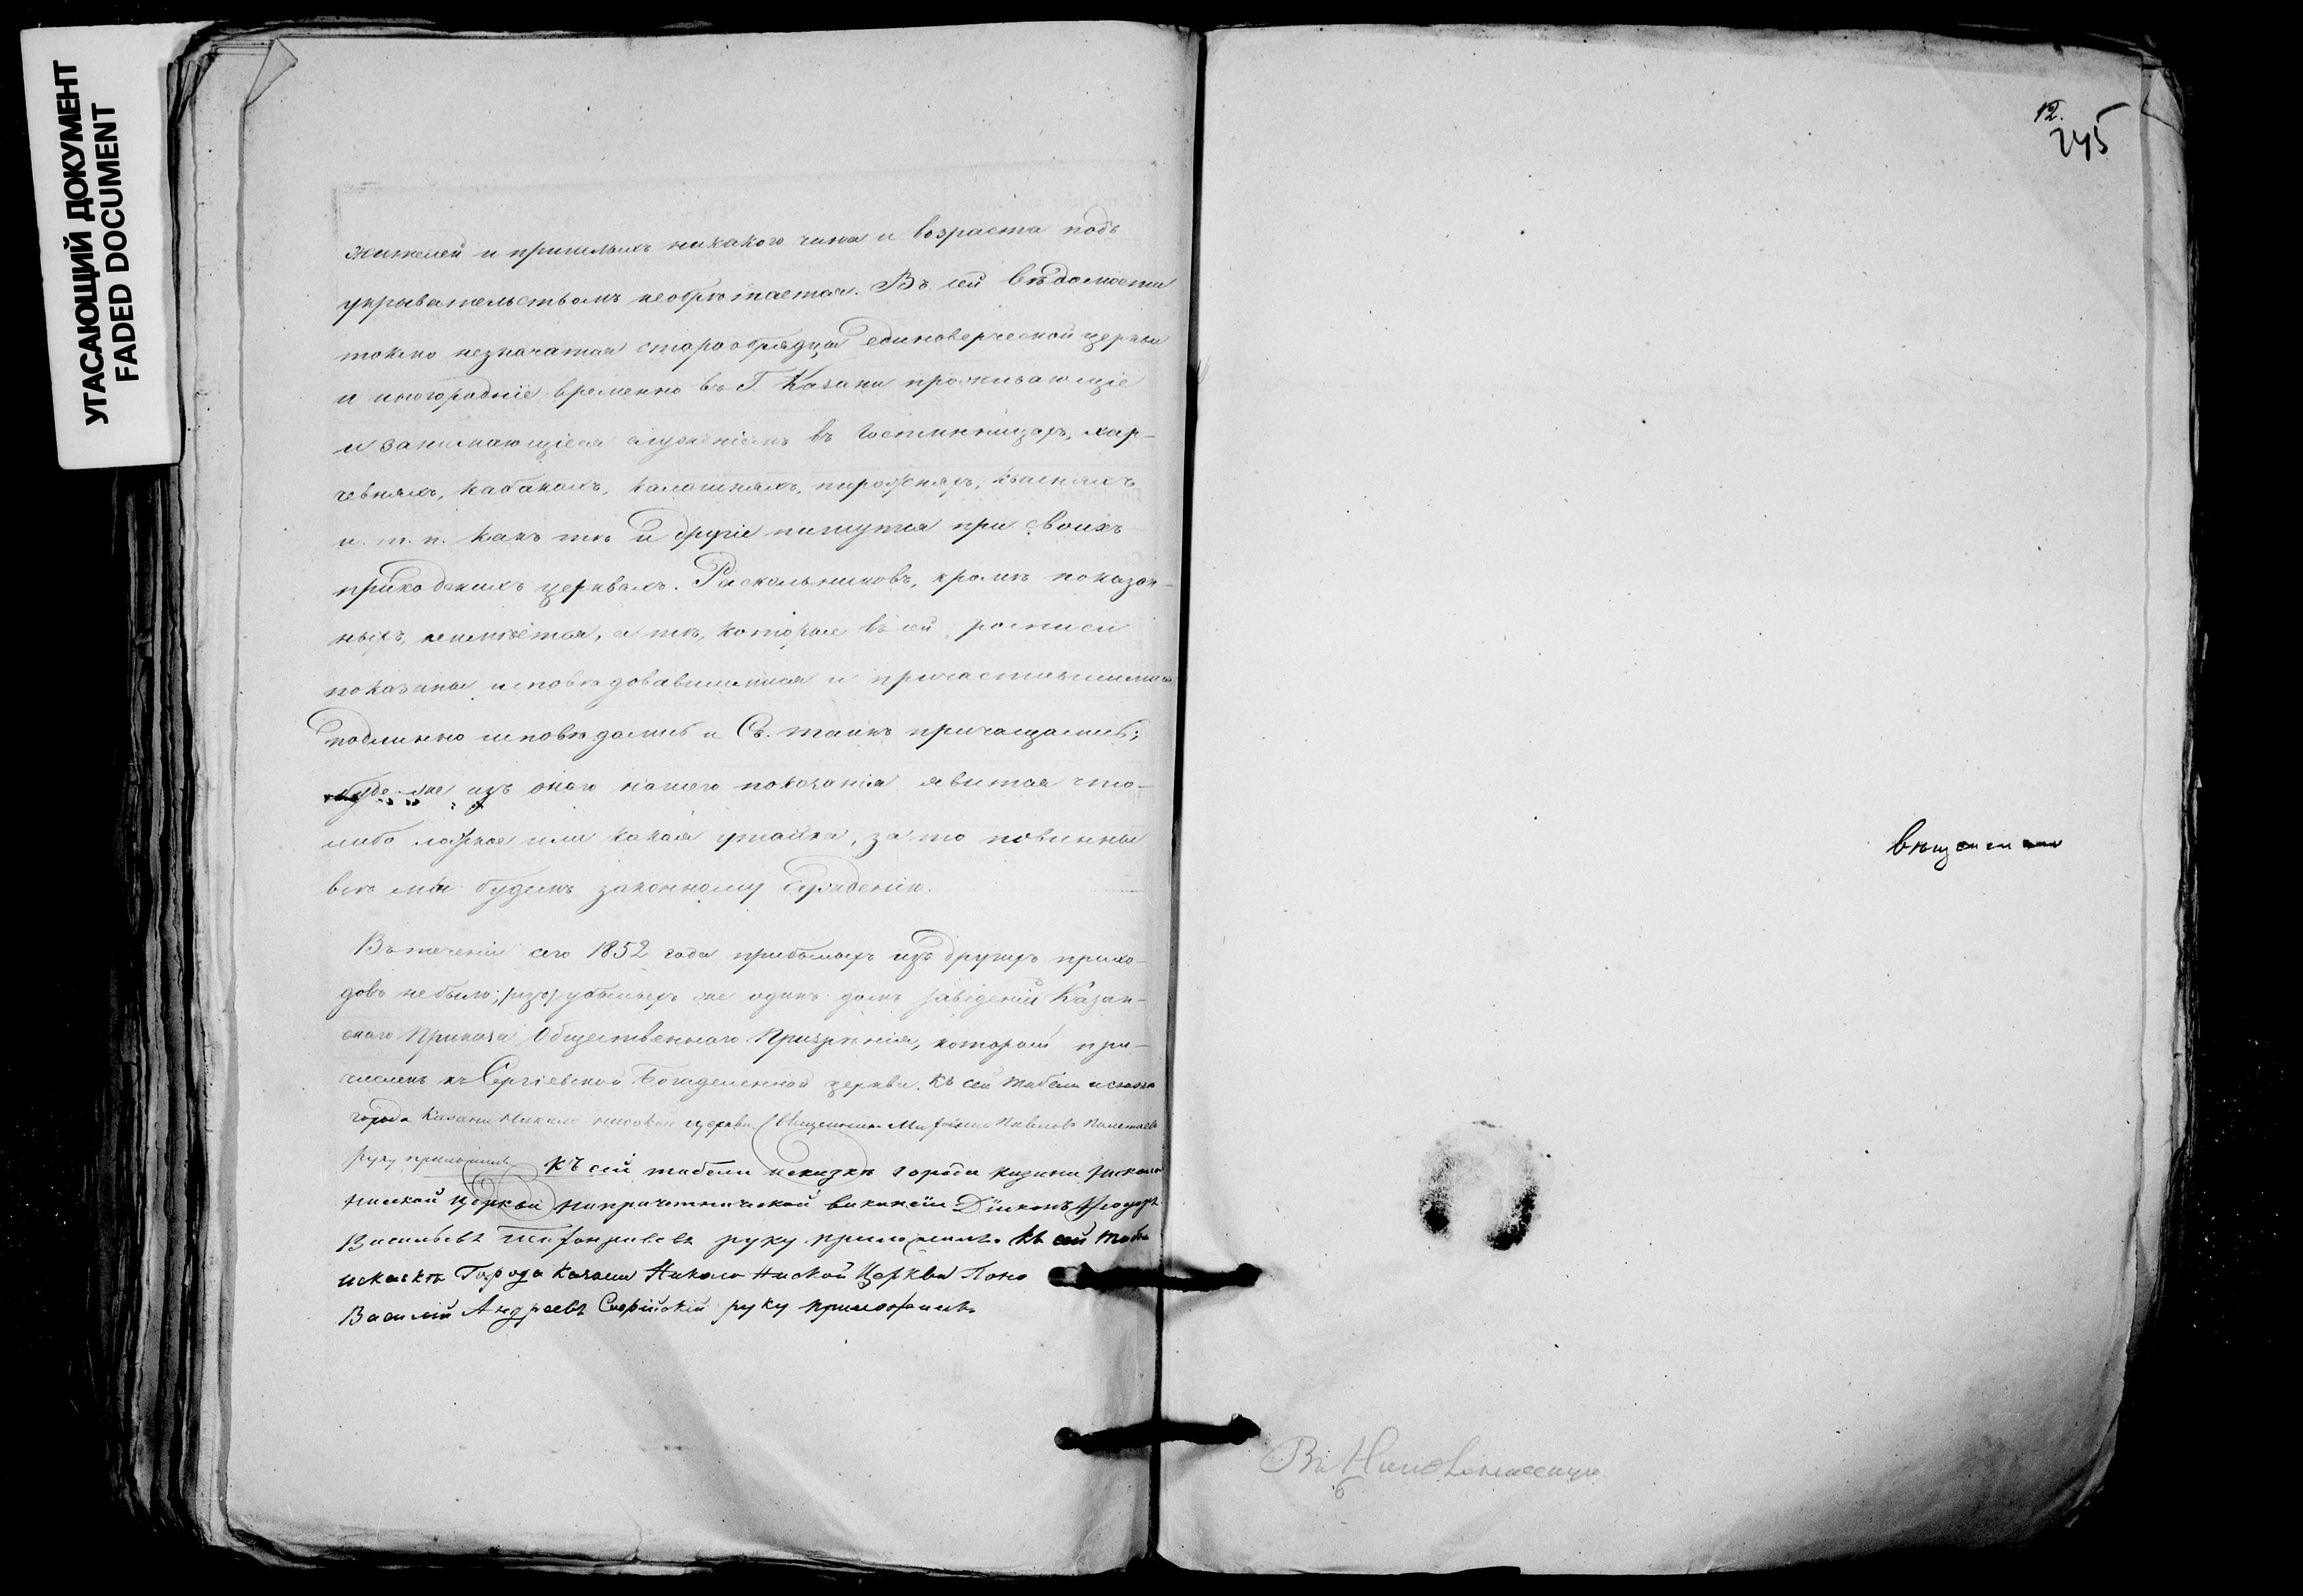 УГАСАЮЩИЙ ДОКУМЕНТ
FADED DOCUMENT
жителей и пришлыхъ никакого чина и возраста подъ
укрывательствомъ необрѣтается. Въ сей вѣдомости
токмо незначатся старообрядцы единоверческой церкви
и иногородніе временно въ Г. Казани проживающіе
и занимающіеся служеніемъ въ Гостинницахъ, хар-
чевняхъ, кабакахъ, калашняхъ, пирожняхъ, квасняхъ
и. т. п. какъ тѣ и другіе пишутся при своихъ
приходскихъ церквахъ. Раскольниковъ, кромѣ показан-
ныхъ, неимѣется, а тѣ, которые въ сей росписи
показаны исповѣдовавшимися и причастившимися
подлинно исповѣдались и Св. таинъ причащались;
буде же изъ онаго нашего показанія явится что-
либо ложное или какая утайка, за то повинны
всѣ мы будемъ законному сужденію.
Въ теченіи сего 1852 года прибылыхъ изъ другихъ прихо-
довъ небыло; убылыхъ же одинъ домъ заведеній Казан-
скаго Приказа Общественнаго Призрѣнія, который при-
численъ къ Сергіевской Богаделенной церкви. Къ сей табели и сказкѣ
города Казани Николо низской церкви Священникъ Павловъ
руку приложилъ Къ сей табели исказкѣ города казани Николо
низской Церкви напричетнической вакансіи Діаконъ Ѳеодоръ
Васильевъ руку приложилъ. Къ сей табели
исказкѣ Города Казани Николо Ниской Церкви Поно
Василій Андреевъ руку приложилъ
12.
245